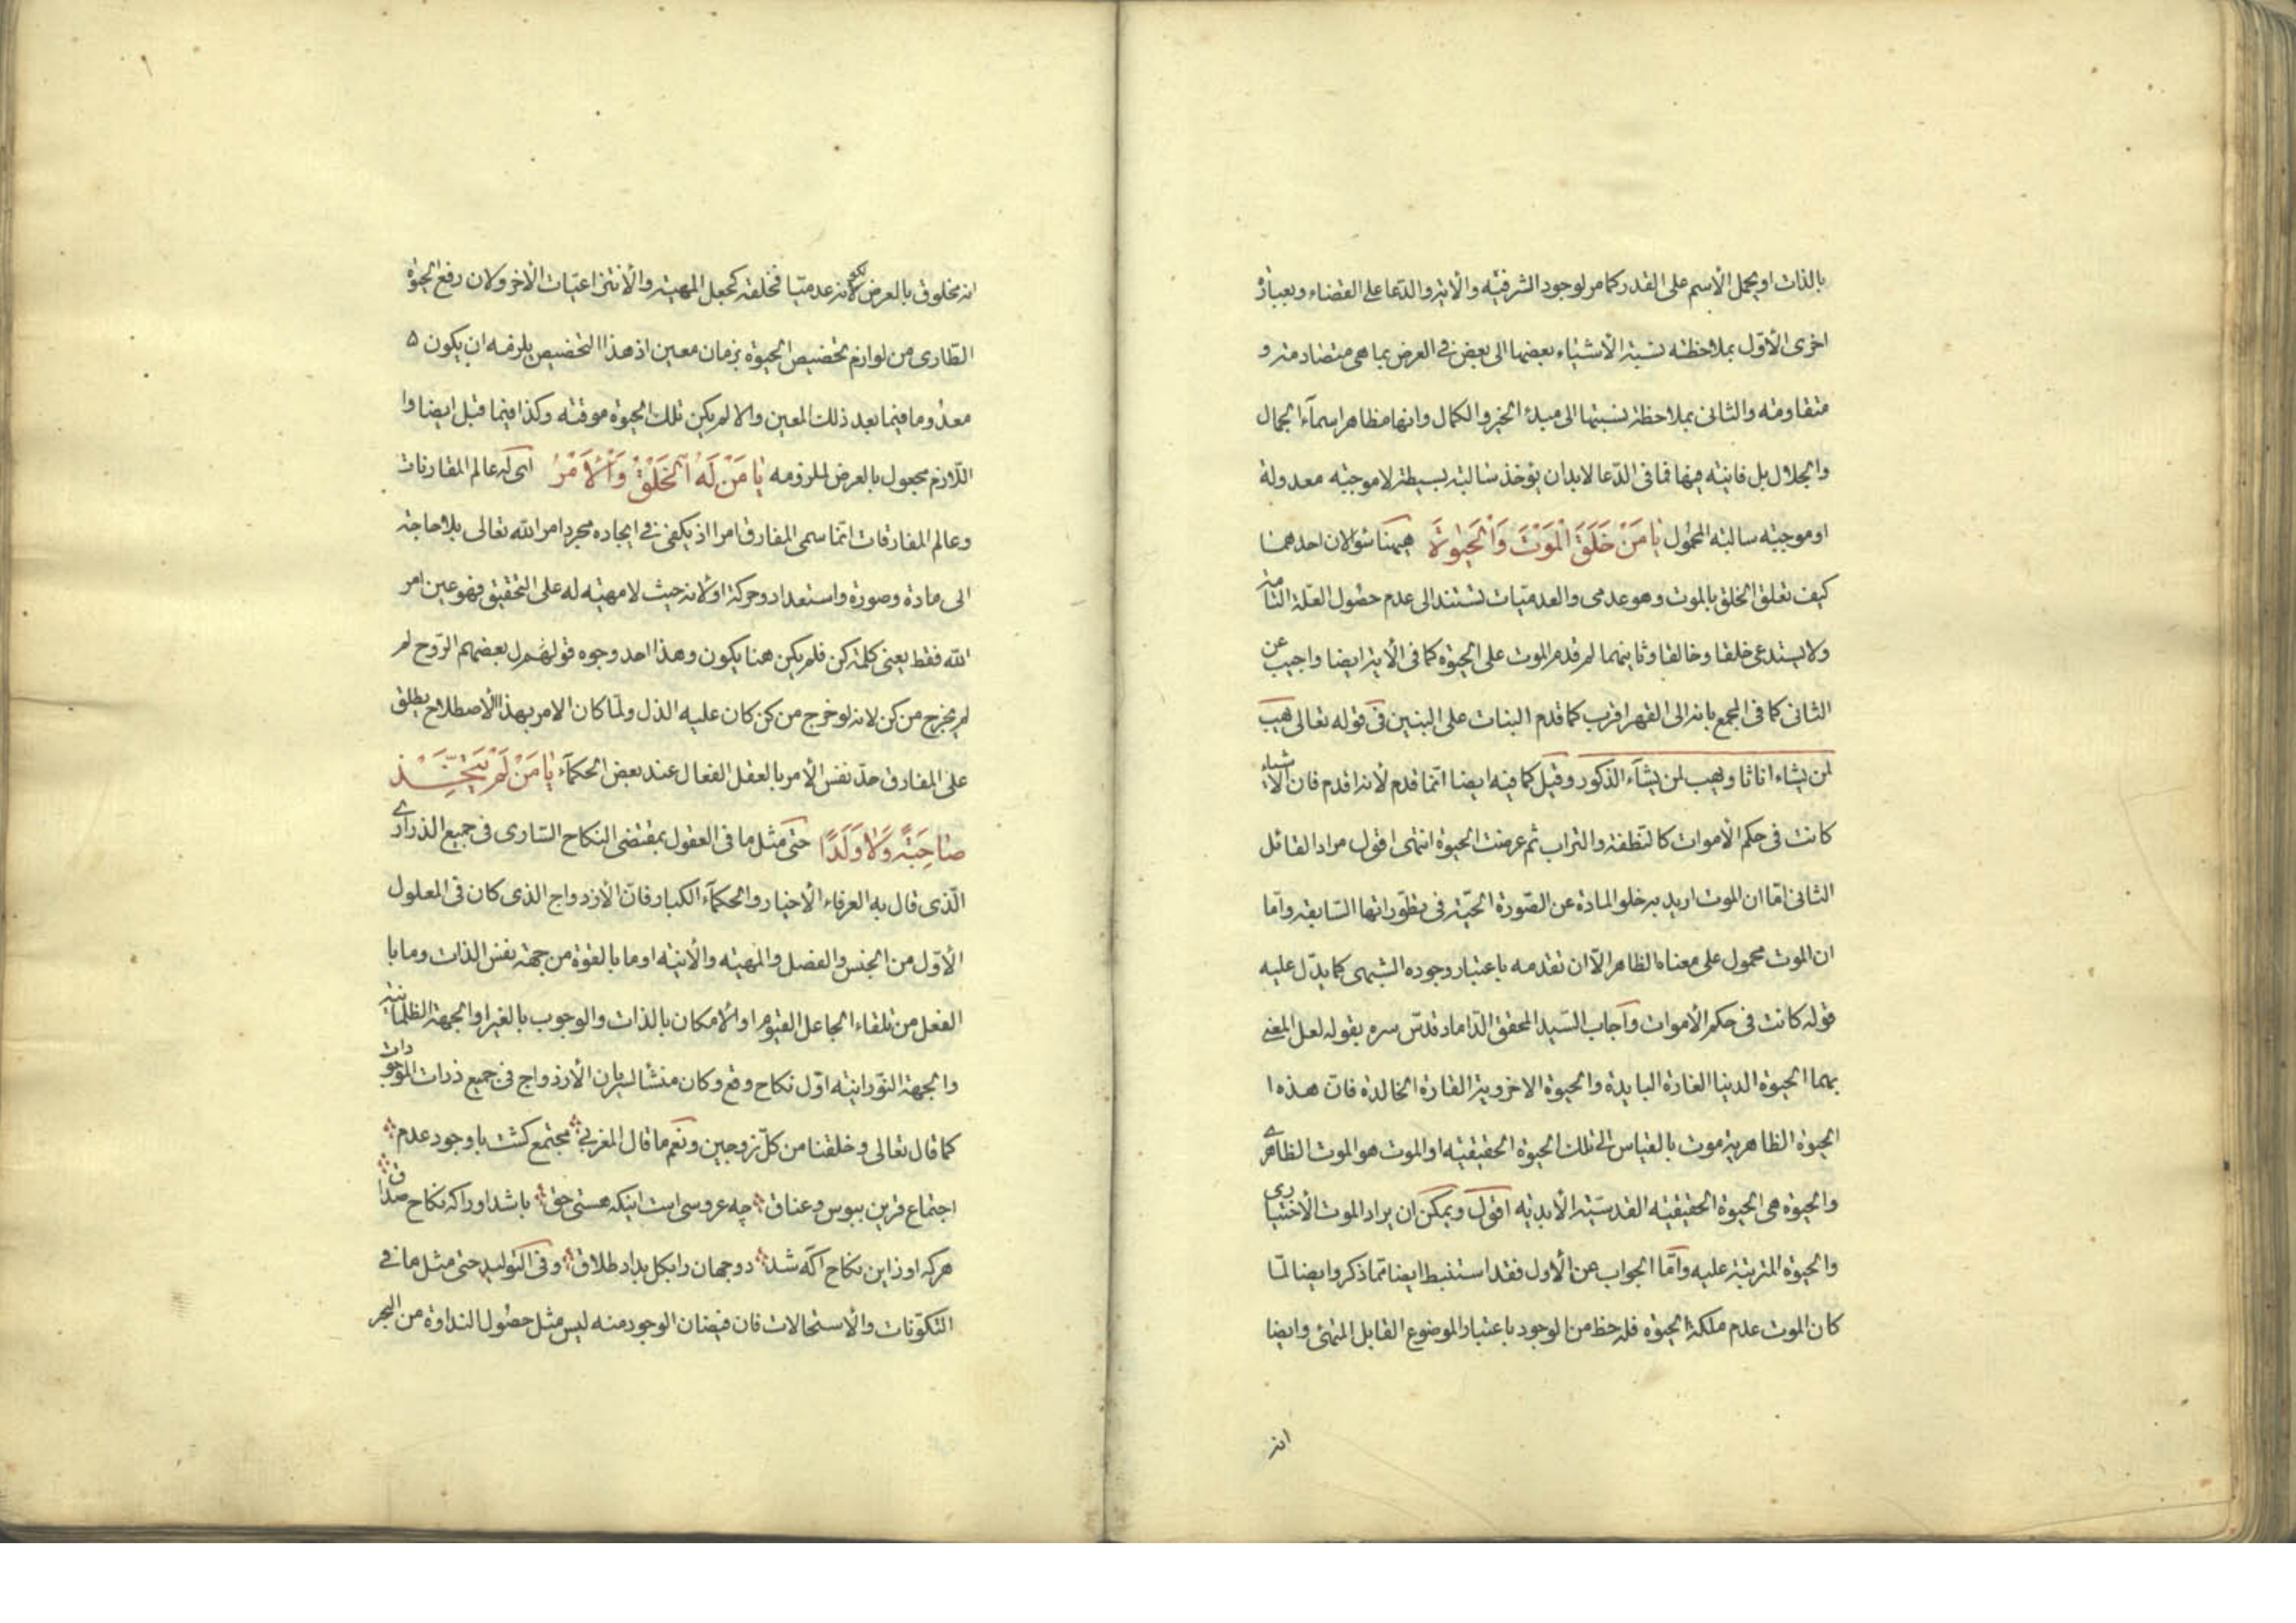 بالذات او يحمل الأسم على القدر كما مر لوجود الشرفيه والأنيه والدعا على القضاء وبعبارة
اخرى الأوّل بملاحظة نسبة الأشياء بعضها الى بعض في العرض بما هى متضادة و
متقاومة والثانى بملاحظة نسبتها الى مبدء الخير والكمال وانها مظاهر اسمآء الجمال
والجلال بل فانيه فيها فما فى الدّعا لابد ان يؤخذ سالبة بسيطة لا موجبه معدولة
او موجبه سالبة المحمول يا مَنْ خَلَقَ الْمَوْتَ وَالْحَيوٰةَ هيهنا سؤالان احدهما
كيف تعلق الخلق بالموت وهو عدمى والعدميّات تستند الى عدم حصول العلّة التامة
ولا يستدعى خلقا وخالقا وثانيهما لم قدم الموت على الحيوة كما فى الأية ايضا واجيب عن
الثانى كما فى المجمع بانه الى القهر اقرب كما قدم البنات على البنين فى قوله تعالى يهب
لمن يشاء اناثا ويهب لمن يشآء الذكور وقيل كما فيه ايضا انّما قدم لأنه اقدم فان الأشياء
كانت فى حكم الأموات كالنّطفة والتراب ثم عرضت الحيوة انتهى اقول مراد القائل
الثانى امّا ان الموت اريد به خلو المادة عن الصّورة الحيّة فى تطوّراتها السّابقة وامّا
ان الموت محمول على معناه الظاهر الّا ان تقدمه باعتبار وجوده الشبهى كما يدلّ عليه
قوله كانت فى حكم الأموات وآجاب السّيد المحقق الدّاماد قدّس سره بقوله لعل المعنى
بهما الحيوة الدنيا الغارة البايدة والحيوة الاخروية القارة الخالدة فان هذه ا
الحيوة الظاهرية موت بالقياس الى تلك الحيوة الحقيقيه او الموت هو الموت الظاهرى
والحيوة هى الحيوة الحقيقيه القدسيّة الأبديه اقول ويمكن ان يراد الموت الأختيارى
والحيوة المترتبة عليه وآمّا الجواب عن الأول فقد استنبط ايضا مما ذكر وايضا لمّا
كان الموت عدم ملكة الحيوة فله حظ من الوجود باعتبار الموضوع القابل المتهيئ وايضا
انه
انه مخلوق بالعرض لكونه عدميّا فخلقه كجعل المهيه والأ اعتبات الأخر ولان رفع الحيوة
الطّارى من لوازم تخصيص الحيوة بزمان معين اذ هذا التخصيص يلزمه ان يكون ه
معدوما فيما بعد ذلك المعين والا لم يكن تلك الحيوة موقته وكذا فيما قبل ايضا وا
اللّازم مجعول بالعرض لملزومه يا مَنْ لَهُ الْخَلْقُ وَالْأَمْرُ اى له عالم المقارنات
وعالم المفارقات انّما سمى المفارق امرا اذ يكفى فى ايجاده مجرد امر الله تعالى بلا حاجة
الى مادة وصورة واستعداد وحركة او لانه حيث لا مهيّه له على التحقيق فهو عين امر
الله فقط يعنى كلمة كن فلم يكن هنا يكون وهذا احد وجوه قول بعضهم الرّوح لم
لم يخرج من كن لانه لو خرج من كن كان عليه الذل ولمّا كان الامر بهذا الأصطلاح يطلق
على المفارق حدّ نفس الأمر بالعقل الفعال عند بعض الحكمآء يا مَنْ لَمْ يَتَّخِذ
صاحِبَةً وَلا وَلَدًا حتّى مثل ما فى العقول بمقتضى النكاح السّارى فى جميع الذرارى
الّذى قال به العرفاء الأخيار والحكمآء الكبار فانّ الأزدواج الذى كان فى المعلول
الأوّل من الجنس والفصل والمهيه والأنيه او ما بالقوة من جهة نفس الذات وما با
الفعل من تلقاء الجاعل القيوم او الأمكان بالذات والوجوب بالغير او الجهة الظلمانية
والجهة النّورانيه اوّل نكاح وقع وكان منشا لسريان الأزدواج فى جميع ذرات الموجودات
كما قال تعالى وخلقنا من كلّ زوجين ونعم ما قال المغربى مجتمع كشت با وجود عدم
اجتماع قرين ببوس وعناق چه عروسى است اينكه هستى حق باشد او را كه نكاح صداق
هر كه او از اين نكاح آكه شد دو جهان را بكل بداد طلاق وفى التوليد حتى مثل ما فى
التكوّنات والأستحالات فان فيضان الوجود منه ليس مثل حصول النداوة من البحر